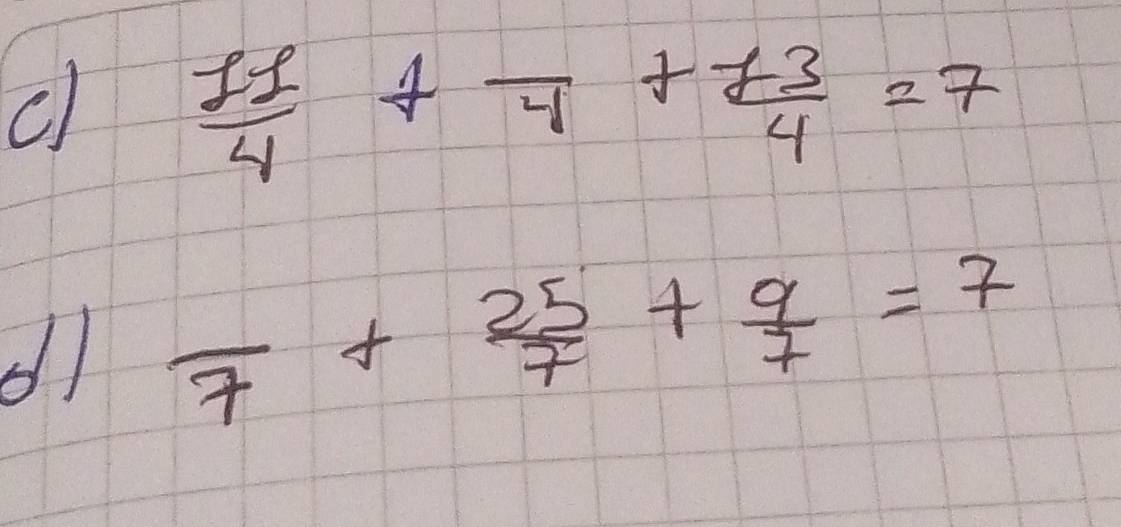 c) 11/4 + /4 + 13/4 = 7
d) /7 + 25/7 + 9/7 = 7